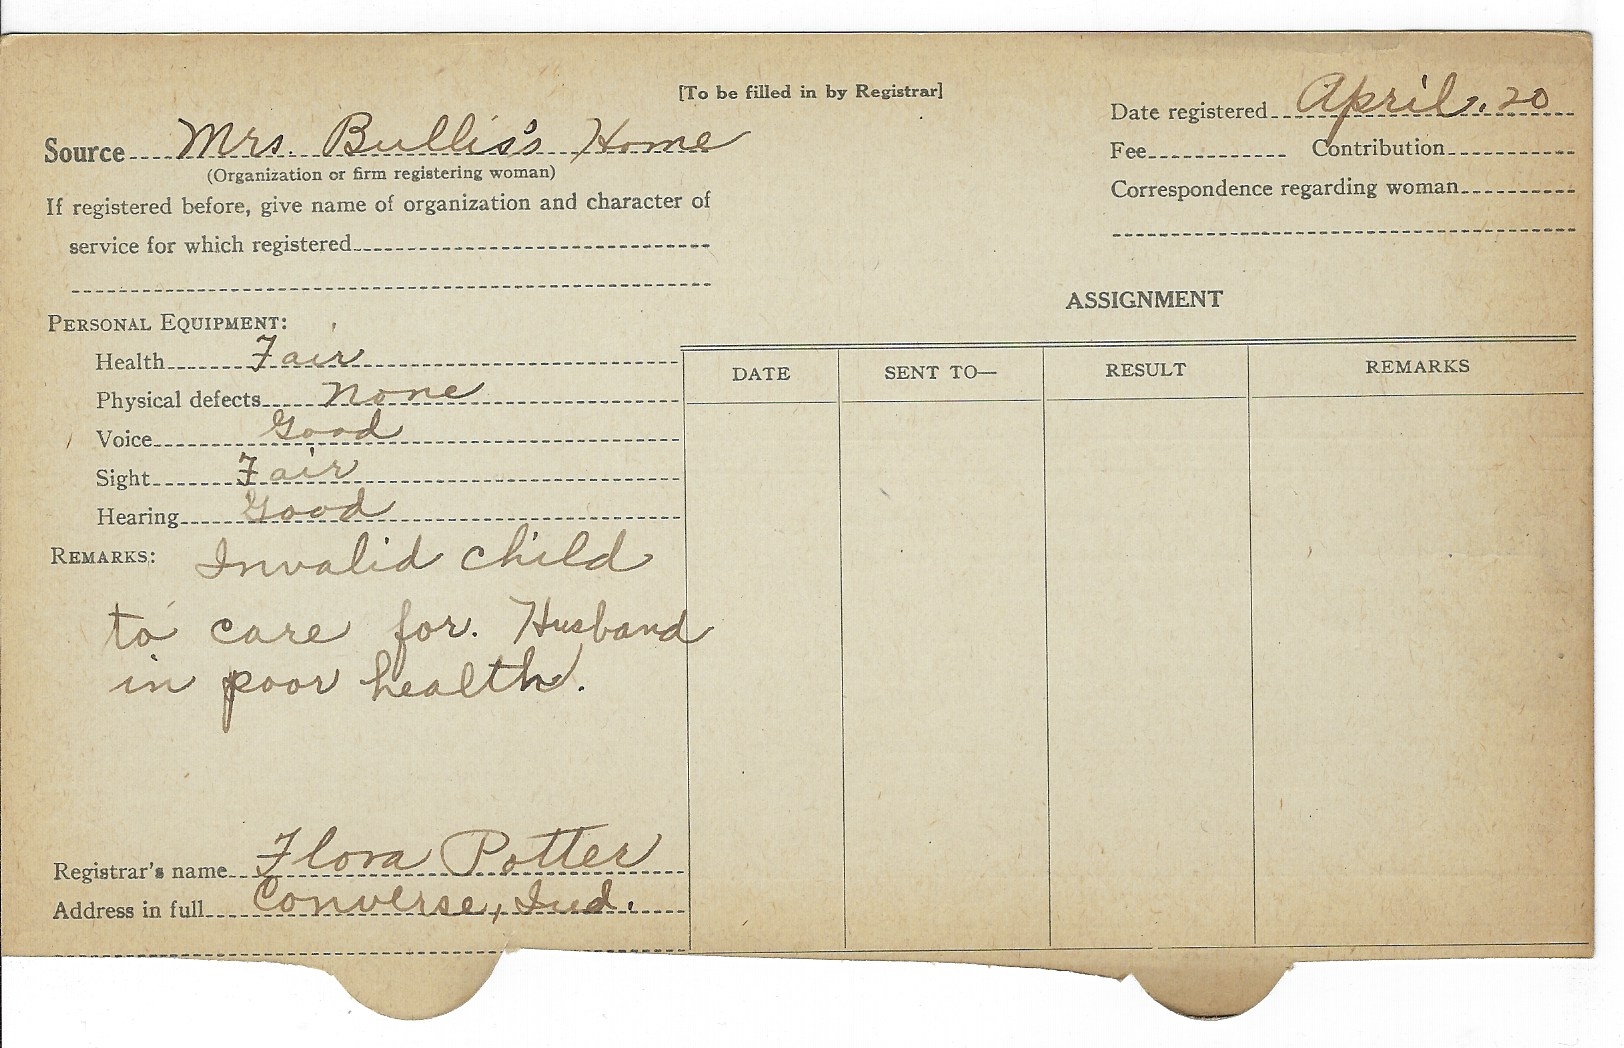 [To be filled in by Registrar]
Source Mrs. Bullis's Home
(Organization or firm registering woman)
If registered before, give name of organization and character of
service for which registered
Date registered April. 20
Fee Contribution
Correspondence regarding woman
PERSONAL EQUIPMENT:
Health Fair
Physical defects none
Voice Good
Sight Fair
Hearing Good
REMARKS: Invalid child
to care for. Husband
in poor health.
Registrar's name Flora Potter
Address in full Converse, Ind.
ASSIGNMENT
DATE SENT TO— RESULT REMARKS